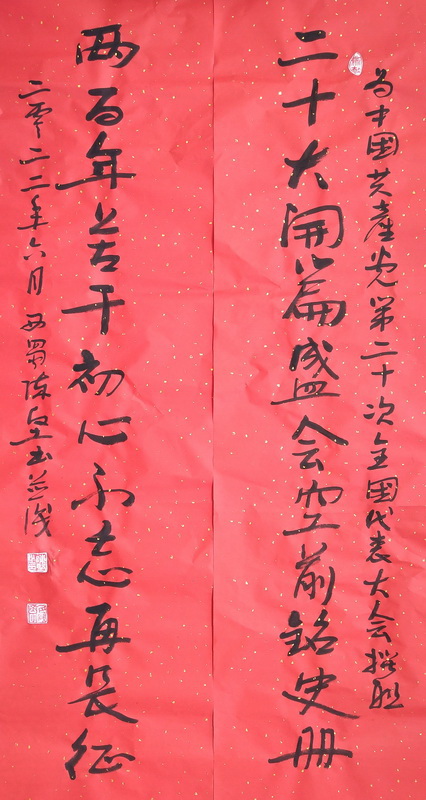 为中國共產党第二十次全國代表大会撰联
二十大開篇盛会空前銘史册
两百年苦干初心不忘再長征
二零二二年六月 西蜀陈坚书并识